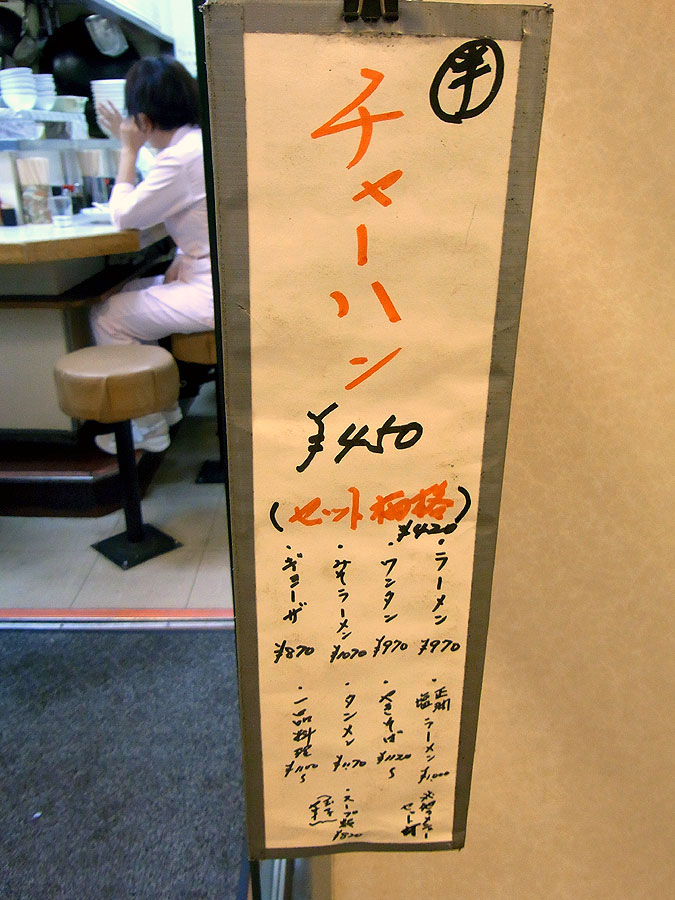 半
チャーハン
¥450
(セット価格)
¥420
・ラーメン
¥970
・ワンタン
¥970
・みそラーメン
¥1070
・ギョーザ
¥870
ラーメン
¥1,000
・やきそば
¥1120
・タンメン
¥1170
・一品料理
¥1100